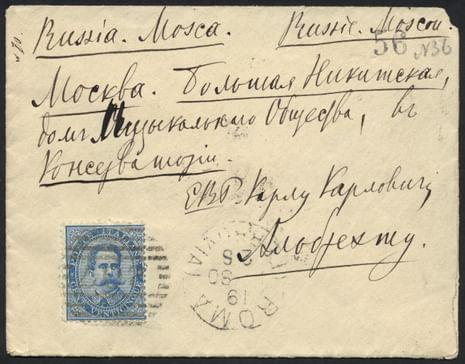 Russia. Mosca. Russie. Moscou.
56 N36
Москва. Большая Никитская,
домъ Музыкальнаго Общества, въ
Консерваторіи.
ЕВР Карлу Карловичу
Альбрехту.
ROMA
19
80
2 S